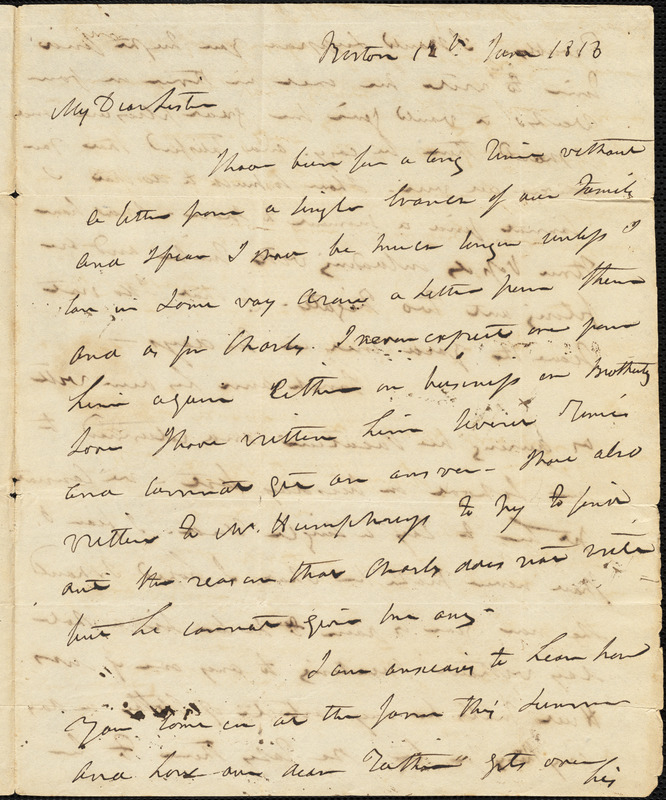 Boston 12th June 1813
My Dear Sister
I have been for a long time without
a letter from a single branch of our Family
and I fear I shall be much longer unless I
can in some way draw a letter from them
and as for Charles. I never expect one from
him again Either on business or Brotherly
Love I have written him several times
and cannot get an answer - I have also
written to Mr. Humphreys to try to find
out the reason that Charles does not write
but he cannot give me any -
I am anxious to hear how
You come on at the farm this summer
and how our dear Father gets over
his